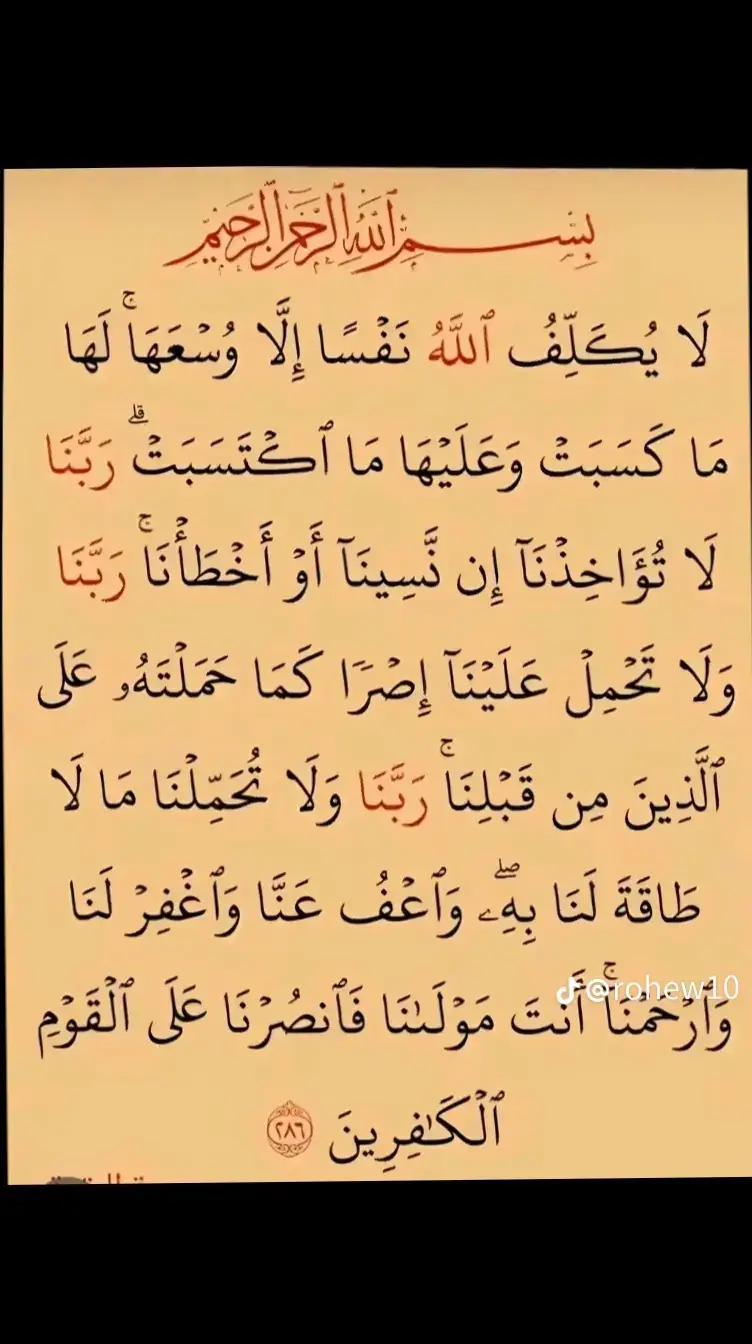 بِسْمِ ٱللَّهِ ٱلرَّحْمَٰنِ ٱلرَّحِيمِ
لَا يُكَلِّفُ ٱللَّهُ نَفۡسًا إِلَّا وُسۡعَهَاۚ لَهَا
مَا كَسَبَتۡ وَعَلَيۡهَا مَا ٱكۡتَسَبَتۡۗ رَبَّنَا
لَا تُؤَاخِذۡنَآ إِن نَّسِينَآ أَوۡ أَخۡطَأۡنَاۚ رَبَّنَا
وَلَا تَحۡمِلۡ عَلَيۡنَآ إِصۡرٗا كَمَا حَمَلۡتَهُۥ عَلَى
ٱلَّذِينَ مِن قَبۡلِنَاۚ رَبَّنَا وَلَا تُحَمِّلۡنَا مَا لَا
طَاقَةَ لَنَا بِهِۦۖ وَٱعۡفُ عَنَّا وَٱغۡفِرۡ لَنَا
@rohew10
وَٱرۡحَمۡنَاۚ أَنتَ مَوۡلَىٰنَا فَٱنصُرۡنَا عَلَى ٱلۡقَوۡمِ
ٱلۡكَٰفِرِينَ ٢٨٦